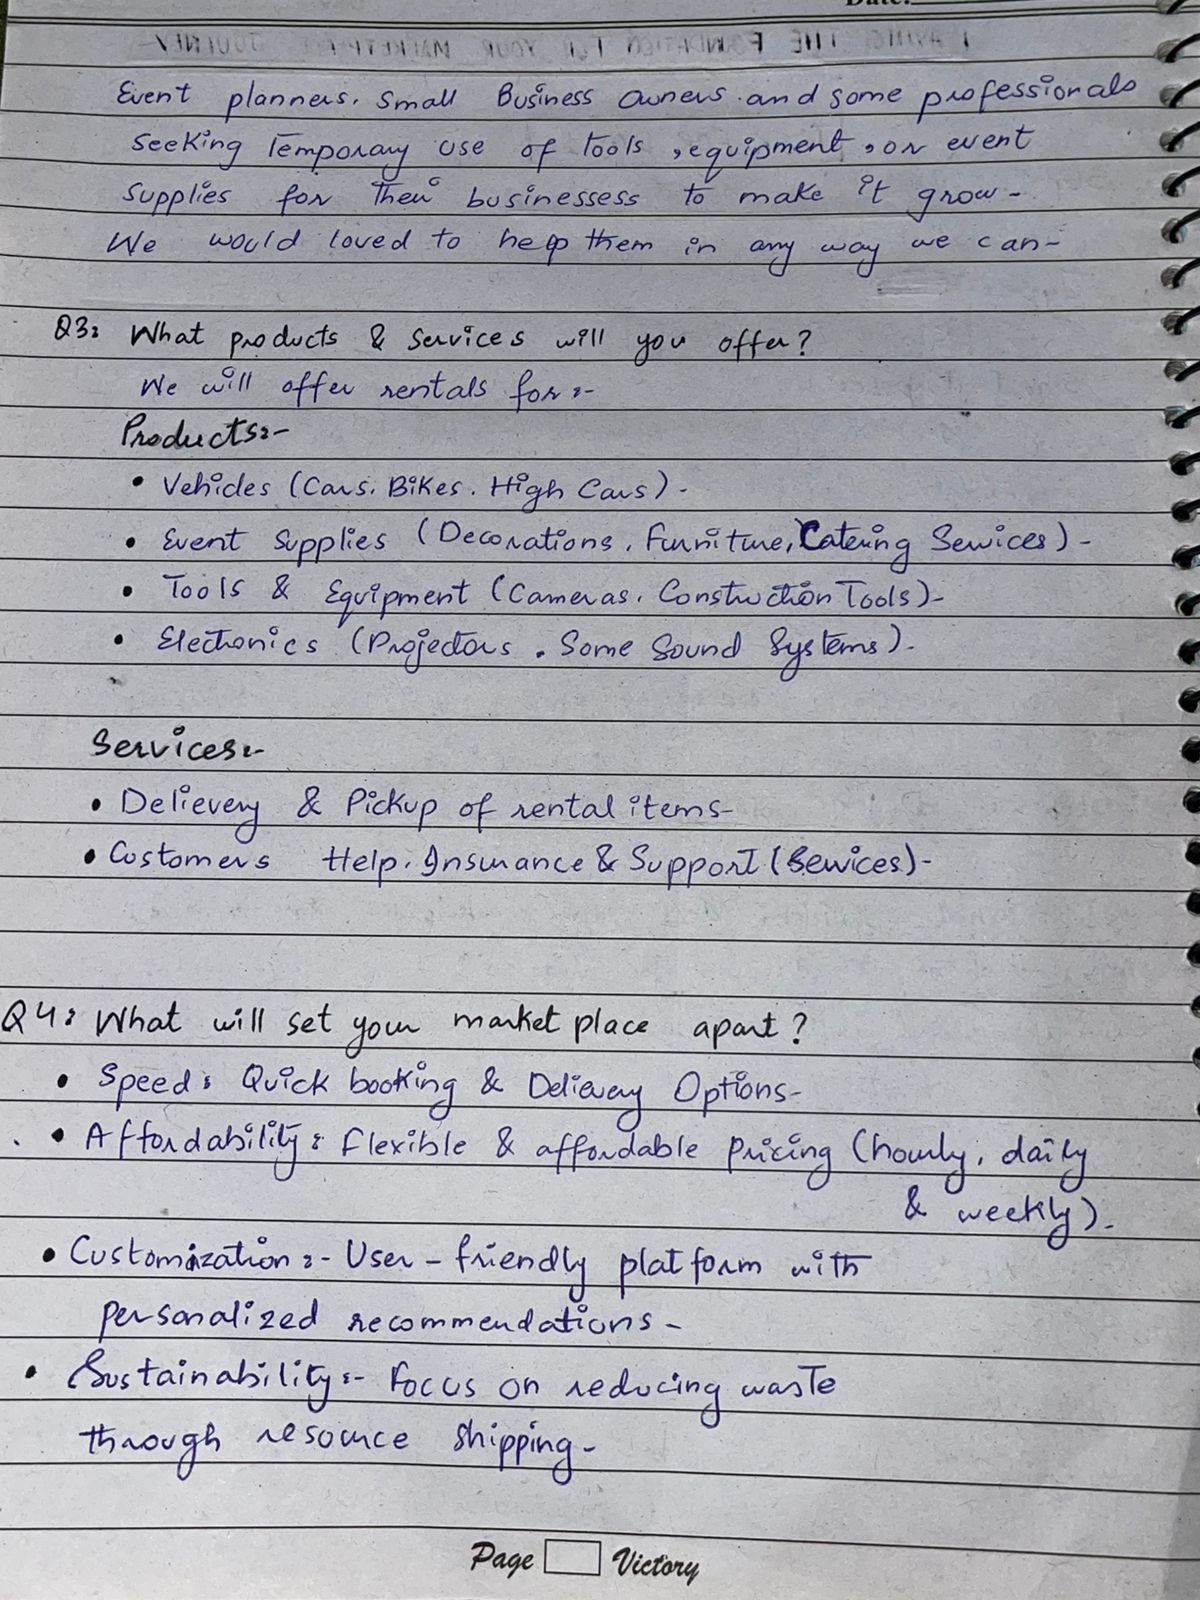 Date:
LAYING THE FOUNDATION FOR YOUR MARKETPLACE JOURNEY
Event planners, Small Business Owners and some professionals
seeking Temporary use of Tools, equipment, or event
supplies for their businessess to make it grow-
We would loved to help them in any way we can-
Q3: What products & Services will you offer?
We will offer rentals for:-
Products:-
• Vehicles (Cars, Bikes, High Cars)-
• Event Supplies (Decorations, Furniture, Catering Services)-
• Tools & Equipment (Cameras, Construction Tools)-
• Electronics (Projectors, Some Sound Systems)-
Services:-
• Delievery & Pickup of rental items-
• Customers Help, Insurance & Support (Services)-
Q4: What will set your market place apart?
• Speed: Quick booking & Delievery Options-
• Affordability: Flexible & affordable Pricing (hourly, daily
& weekly)-
• Customization:- User-friendly platform with
personalized recommendations-
• Sustainability:- Focus on reducing waste
through resource shipping-
Page Victory